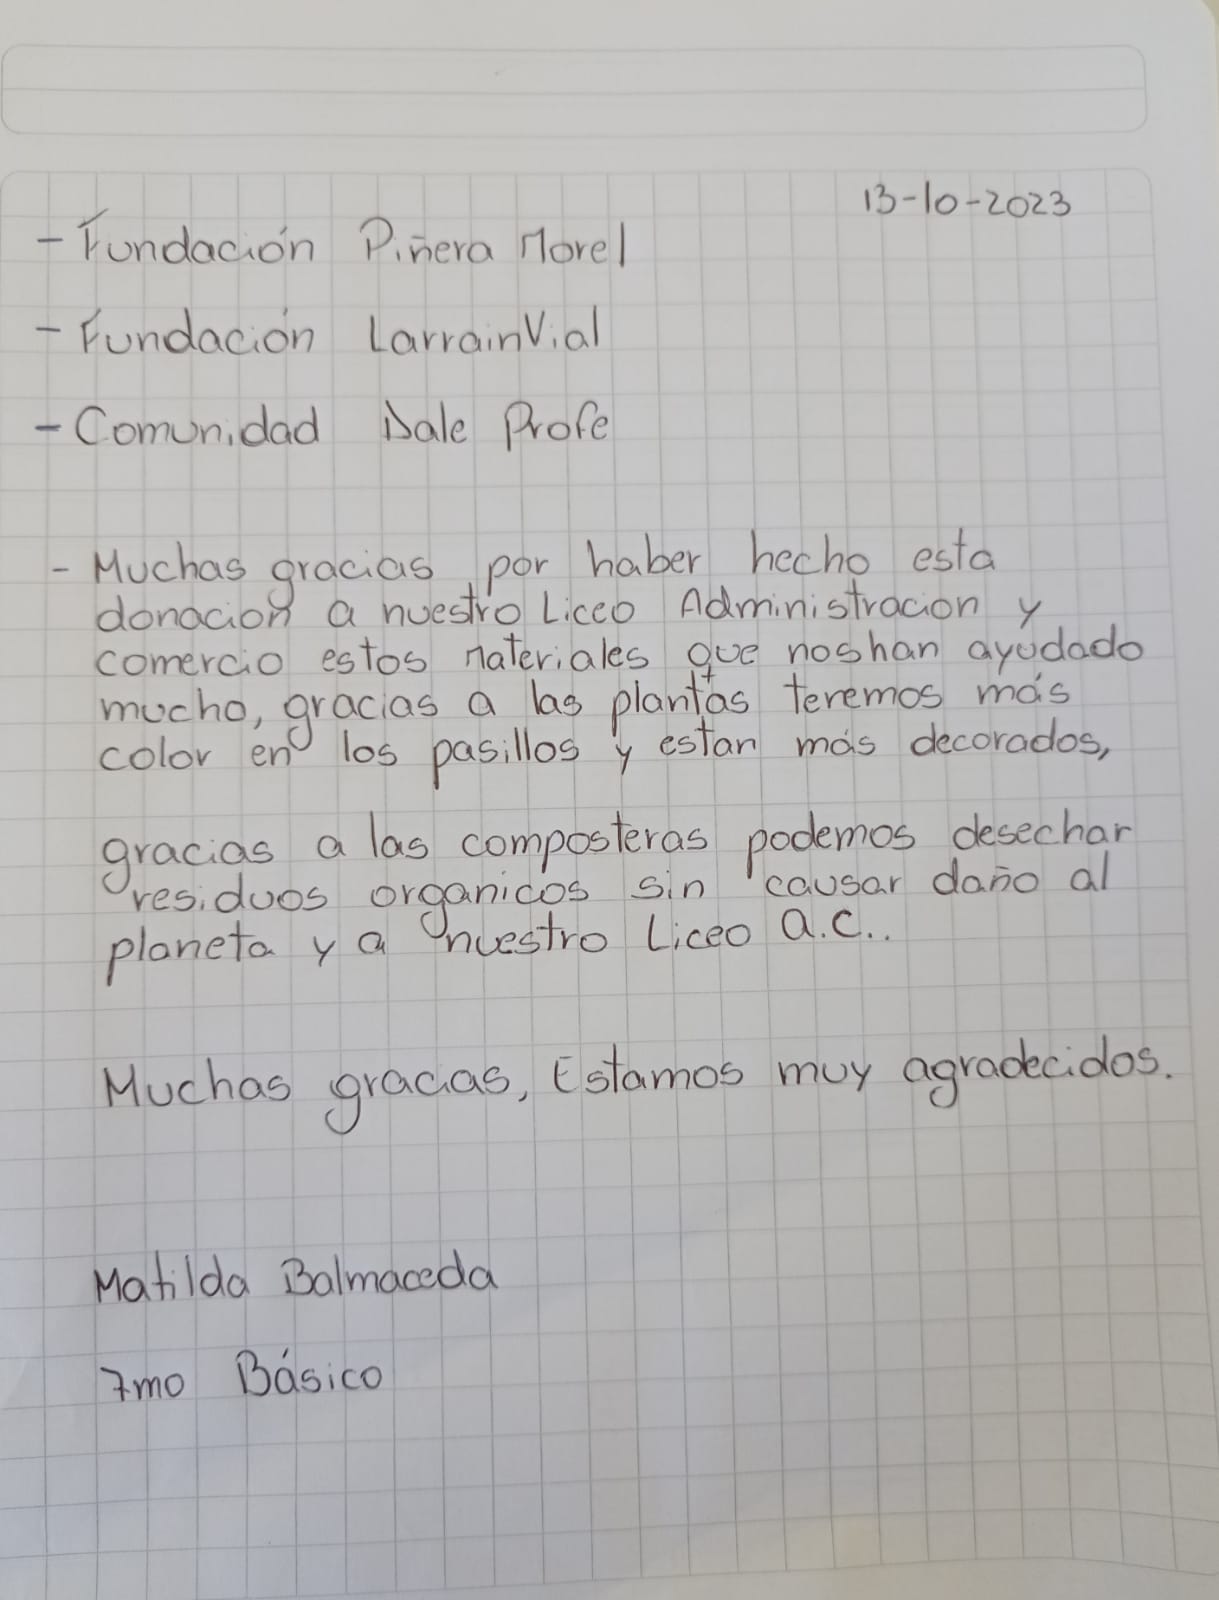 13-10-2023
- Fundación Piñera Morel
- Fundación LarrainVial
- Comunidad Dale Profe
- Muchas gracias por haber hecho esta
donacion a nuestro Liceo Administracion y
comercio estos materiales que nos han ayudado
mucho, gracias a las plantas teremos más
color en los pasillos y estan más decorados,
gracias a las composteras podemos desechar
residuos organicos sin causar daño al
planeta y a nuestro Liceo a.c..
Muchas gracias, Estamos muy agradecidos.
Matilda Balmaceda
7mo Básico